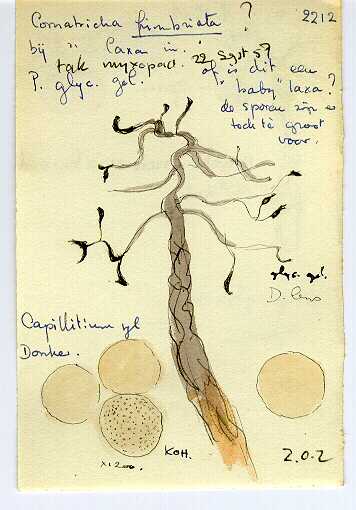 Comatricha fimbriata ? 2212
bij " laxa in.
tak myxopad. 22 Sept 57
P. glyc. gel. of is dit een
"baby" laxa?
de sporen zijn er
toch te groot
voor.
glyc. gel.
D. lens
Capillitium yl
Donker.
x1200.
KOH.
2.0.2